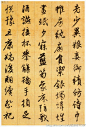 老少異糧妾御績紡侍巾
帷房紈扇圓潔銀燭煒煌
晝眠夕寐藍筍象床弦歌
酒宴接杯舉觴矯手頓足
悅豫且康嫡後嗣續祭祀